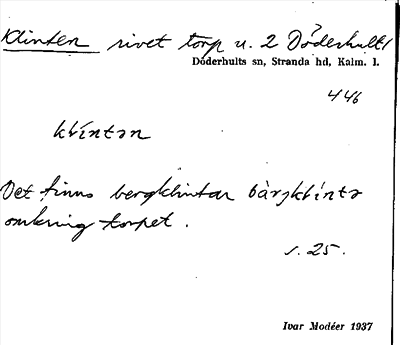 Klinten rivet torp u. 2 Döderhult
Döderhults sn, Stranda hd, Kalm. l.
446
klíntən
Det finns bergklintar bàrjklíntə
omkring torpet.
s. 25.
Ivar Modéer 1937